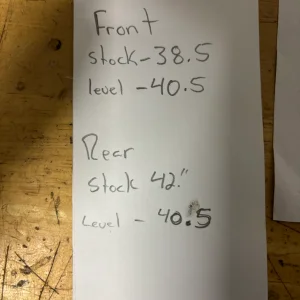 Front
stock-38.5
level -40.5
Rear
Stock 42."
Level - 40.5